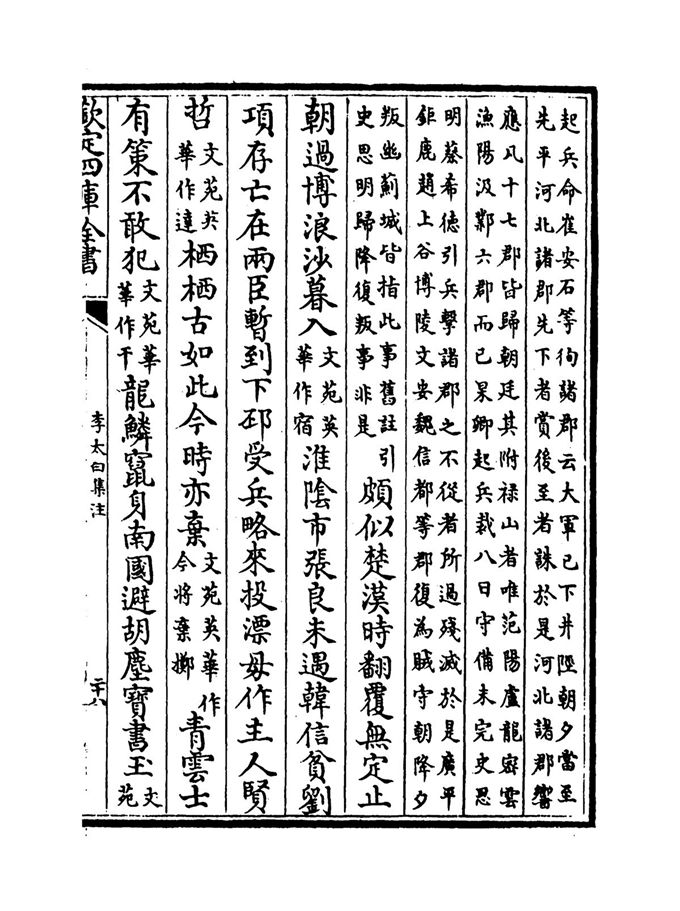 起兵命崔安石等徇諸郡云大軍已下井陘朝夕當至
先平河北諸郡先下者賞後至者誅於是河北諸郡響
應凡十七郡皆歸朝廷其附禄山者唯范陽盧龍密雲
漁陽汲鄴六郡而已杲卿起兵裁八日守備未完史思
明蔡希德引兵擊諸郡之不從者所過殘滅於是廣平
鉅鹿趙上谷博陵文安魏信都等郡復為賊守朝降夕
叛幽薊城皆指此事舊註引史思明歸降復叛事非是頗似楚漢時翻覆無定止
朝過博浪沙暮入文苑英華作宿淮陰市張良未遇韓信貧劉
項存亡在兩臣暫到下邳受兵略來投漂母作主人賢
哲文苑英華作達栖栖古如此今時亦棄文苑英華作今將棄擲青雲士
有策不敢犯文苑華華作干龍鱗竄身南國避胡塵寳書玉文苑
欽定四庫全書
李太白集注